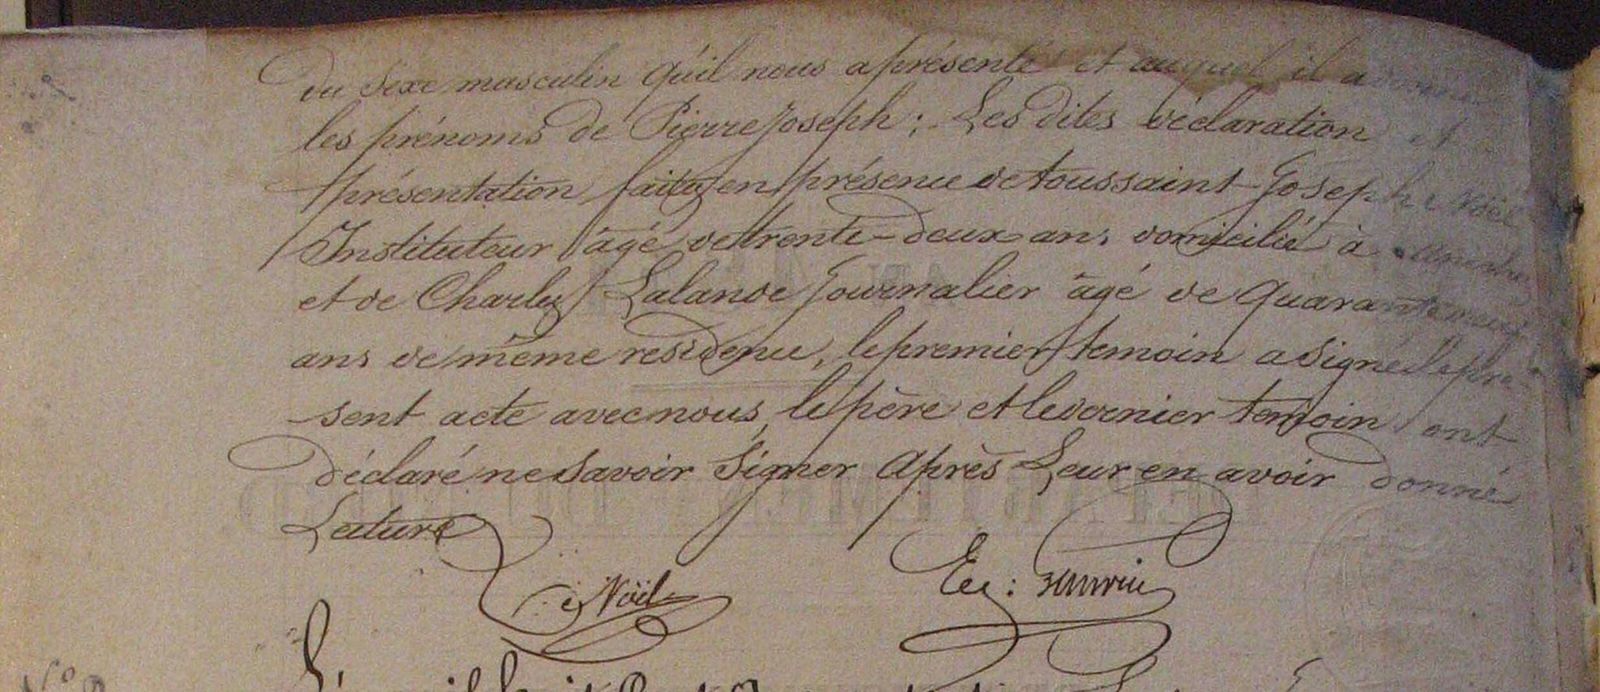 du sexe masculin qu'il nous a présenté et auquel il a donné
les prénoms de Pierre Joseph; Les dites déclaration et
présentation faites en présence de toussaint Joseph Noël
Instituteur âgé de trente-deux ans domicilié à
et de Charles Lalande Journalier âgé de quarante neuf
ans de même residence, le premier temoin a signé le pré-
sent acte avec nous, le père et le dernier temoin ont
déclaré ne savoir signer après Leur en avoir donné
Lecture
Noël
N°